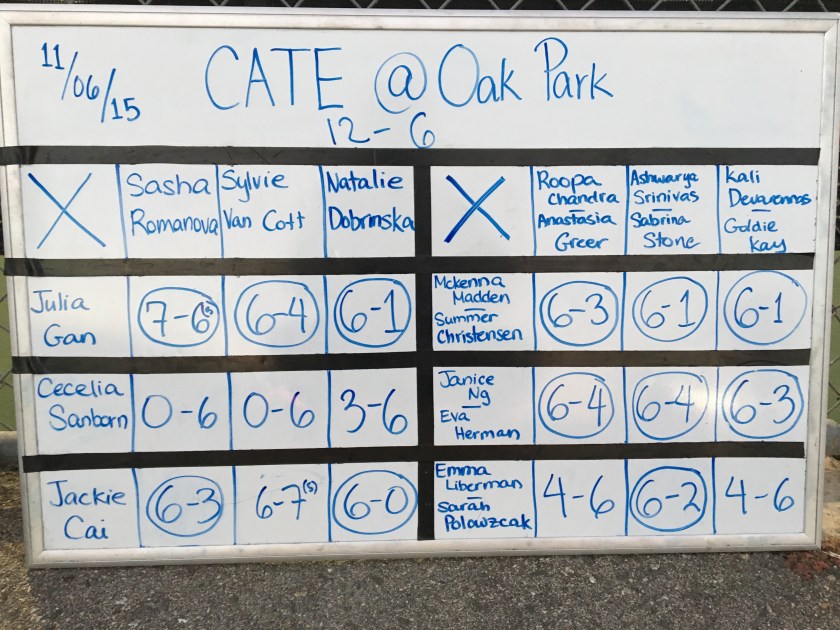 11/06/15
CATE @ Oak Park
12-6
Sasha Romanova
Sylvie Van Cott
Natalie Dobrinska
Roopa Chandra
Anastasia Greer
Ashwarya Srinivas
Sabrina Stone
Kali
Goldie Kay
Julia Gan
7-6
6-4
6-1
Mckenna Madden
Summer Christensen
6-3
6-1
6-1
Cecelia Sanborn
0-6
0-6
3-6
Janice Ng
Eva Herman
6-4
6-4
6-3
Jackie Cai
6-3
6-7(5)
6-0
Emma Liberman
Sarah Polowzcak
4-6
6-2
4-6